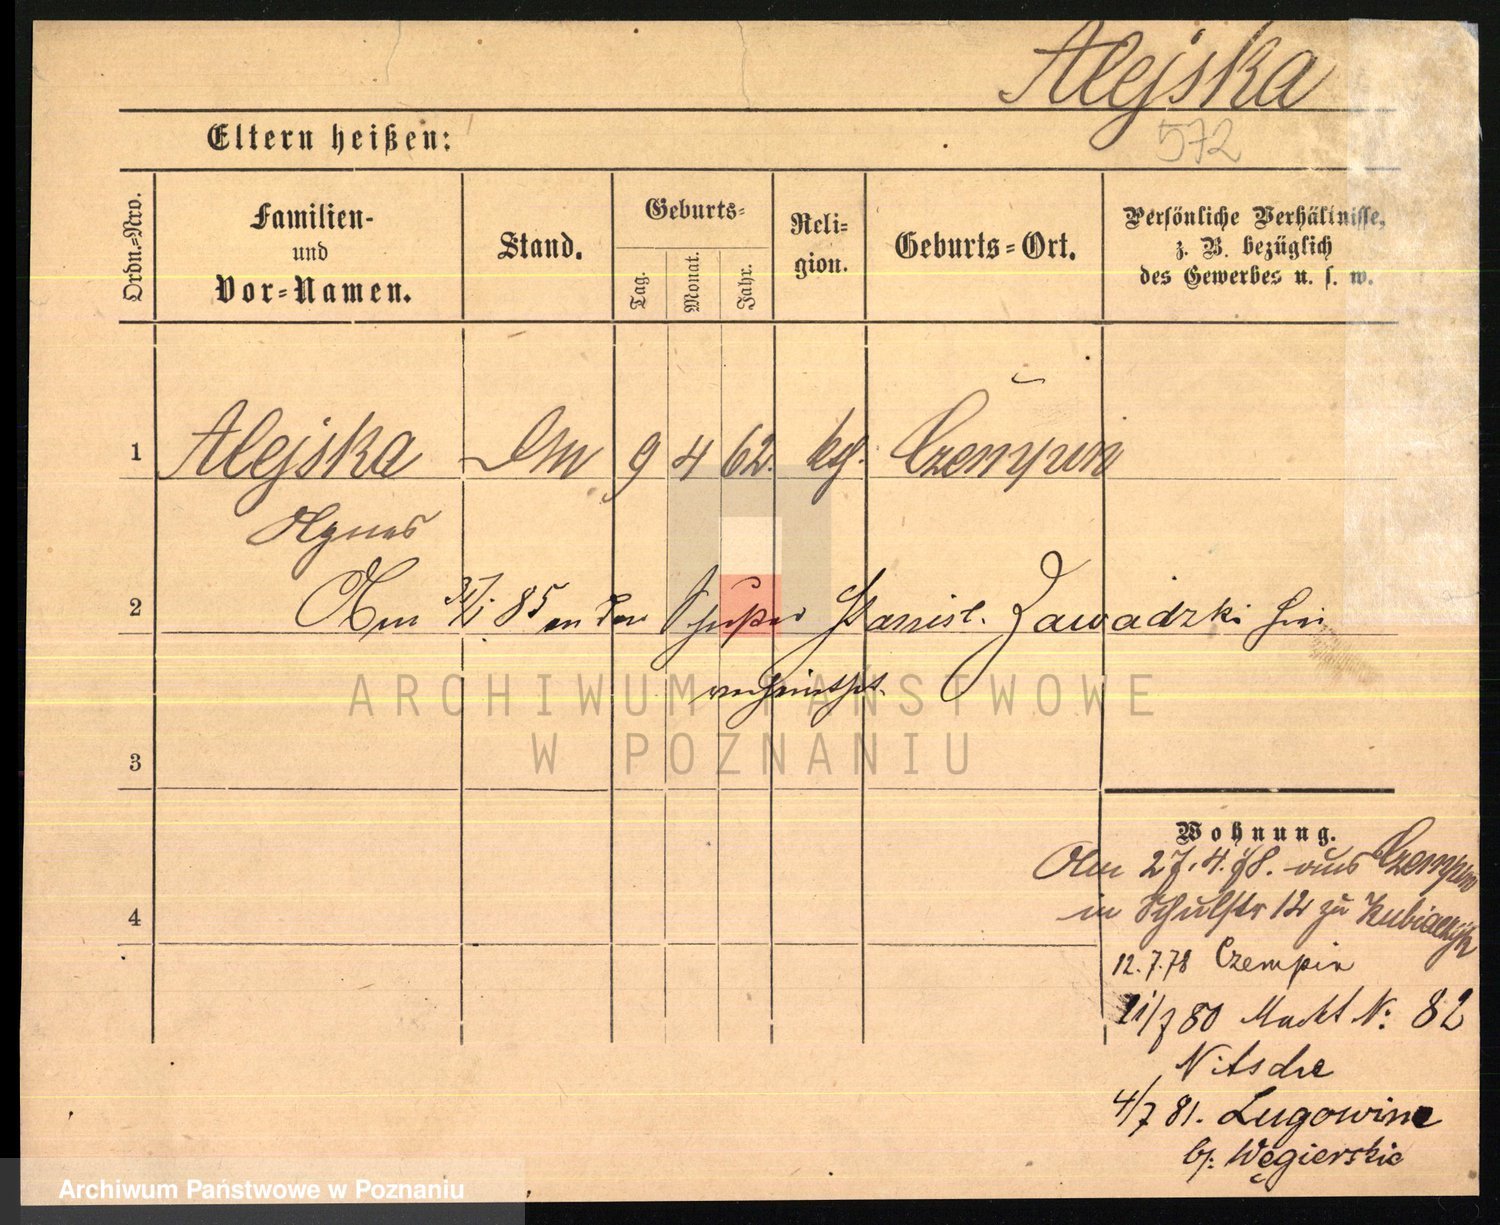 Alejska
572
Eltern heißen:
Ordn.=Nro.
Familien-
und
Vor=Namen.
Stand.
Geburts=
Tag.
Monat.
Jahr.
Reli=
gion.
Geburts=Ort.
Persönliche Verhältnisse,
z. B. bezüglich
des Gewerbes u. s. w.
1 Alejska 9 4 62. kg. Czempin
Agnes
2 Am 85 an den Stanisl. Zawadzki hier
verheirathet.
ARCHIWUM PAŃSTWOWE
W POZNANIU
3
Wohnung.
Am 27.4.78. aus Czempin
4 in Schulstr 12 zu
12.7.78 Czempin
11/7 80 Markt N: 82
Nitsche
4/7 81. Lugowine
b/: Węgierskie
Archiwum Państwowe w Poznaniu